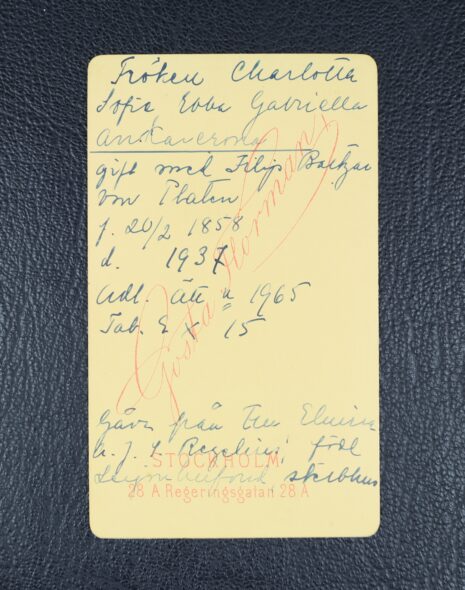 Fröken Charlotta
Sofia Ebba Gabriella
Anckarcrona
gift med Filip Baltzar
von Platen
f. 20/2 1858
d. 1937
Adl. ätt n 1965
Tab. 2 + 15
Gösta Florman
Gåva från Fru Elvira
född
sterbhus
STOCKHOLM
28 A Regeringsgatan 28 A